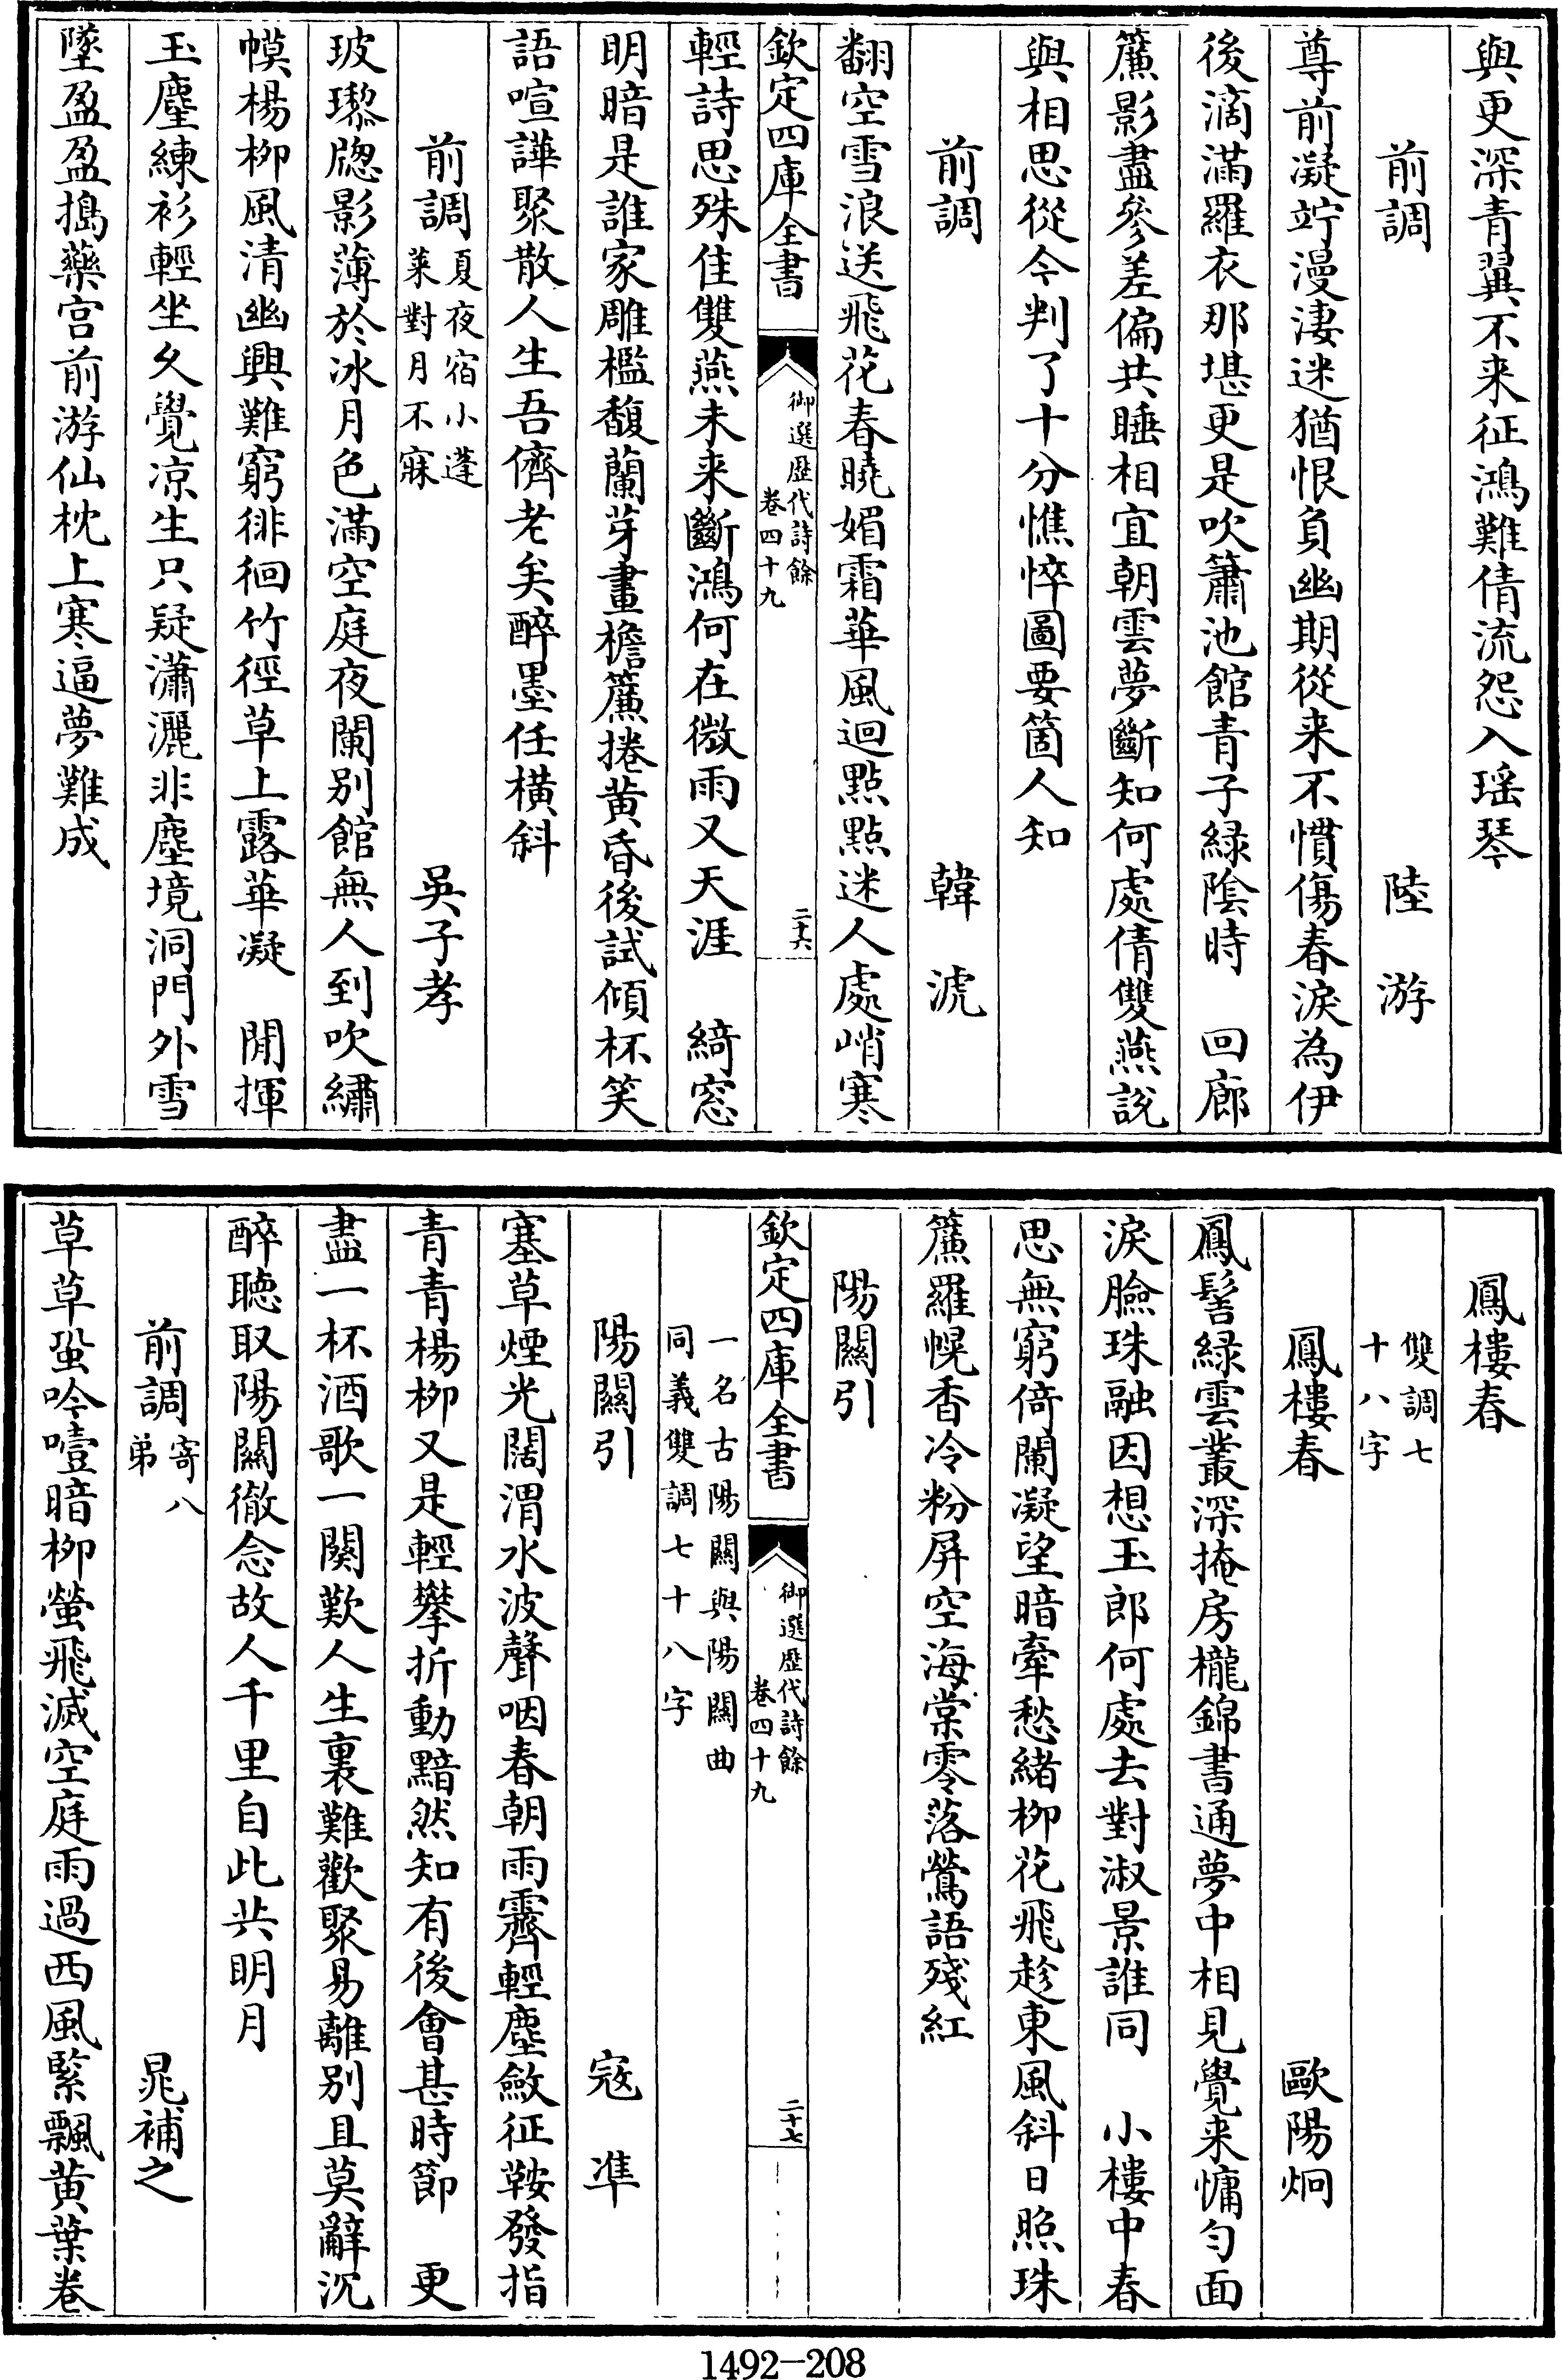 與更深青翼不来征鴻難倩流怨入瑶琴
前調　陸　游
尊前凝竚漫淒迷猶恨負幽期從来不慣傷春淚為伊
後滴滿羅衣那堪更是吹簫池館青子緑陰時　回廊
簾影晝參差偏共睡相宜朝雲夢斷知何處倩雙燕說
與相思從今判了十分憔悴圖要箇人知
前調　韓　淲
翻空雪浪送飛花春曉媚霜華風迴點點迷人處峭寒
欽定四庫全書　御選歴代詩餘　卷四十九　二十六
輕詩思殊佳雙燕未来斷鴻何在微雨又天涯　綺窓
明暗是誰家雕檻馥蘭芽畫檐簾捲黄昏後試傾杯笑
語喧譁聚散人生吾儕老矣醉墨任橫斜
前調夏夜宿小蓬萊對月不寐　吳子孝
玻瓈牕影薄於冰月色滿空庭夜闌别館無人到吹繡
幙楊柳風清幽興難窮徘徊竹徑草上露華凝　閒揮
玉麈練衫輕坐久覺凉生只疑瀟灑非塵境洞門外雪
墜盈盈搗藥宮前游仙枕上寒逼夢難成
鳳樓春
雙調七十八字
鳳樓春　歐陽炯
鳳髻緑雲叢深掩房櫳錦書通夢中相見覺来慵勻面
淚臉珠融因想玉郎何處去對淑景誰同　小樓中春
思無窮倚闌凝望暗牽愁緒柳花飛趁東風斜日照珠
簾羅幌香冷粉屏空海棠零落鶯語殘紅
陽闗引
欽定四庫全書　御選歴代詩餘　卷四十九　二十七
一名古陽闗與陽闗曲同義雙調七十八字
陽闗引　寇　準
塞草煙光闊渭水波聲咽春朝雨霽輕塵斂征鞍發指
青青楊柳又是輕攀折動黯然知有後會甚時節　更
盡一杯酒歌一闋歎人生裏難歡聚易離别且莫辭沉
醉聽取陽闗徹念故人千里自此共明月
前調寄八弟　晁補之
草草蛩吟噎暗柳螢飛滅空庭雨過西風緊飄黄葉卷
1492—208